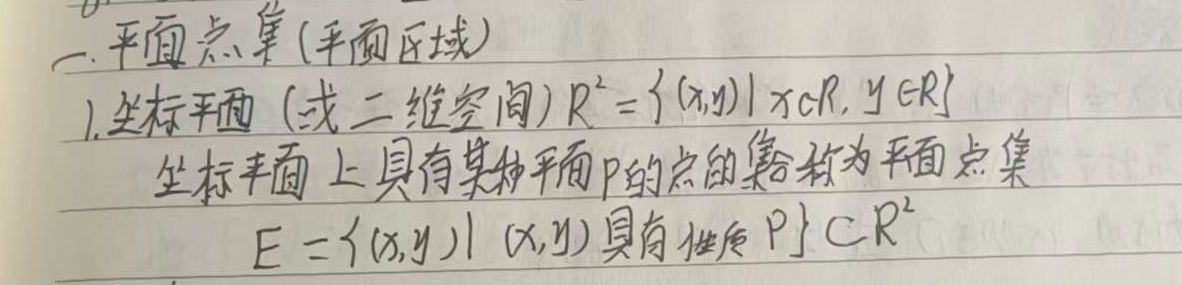 一.平面点集(平面区域)
1.坐标平面(或二维空间)R²={(x,y)|x∈R,y∈R}
坐标平面上具有某种平面P的点的集合称为平面点集
E={(x,y)|(x,y)具有性质P}⊂R²